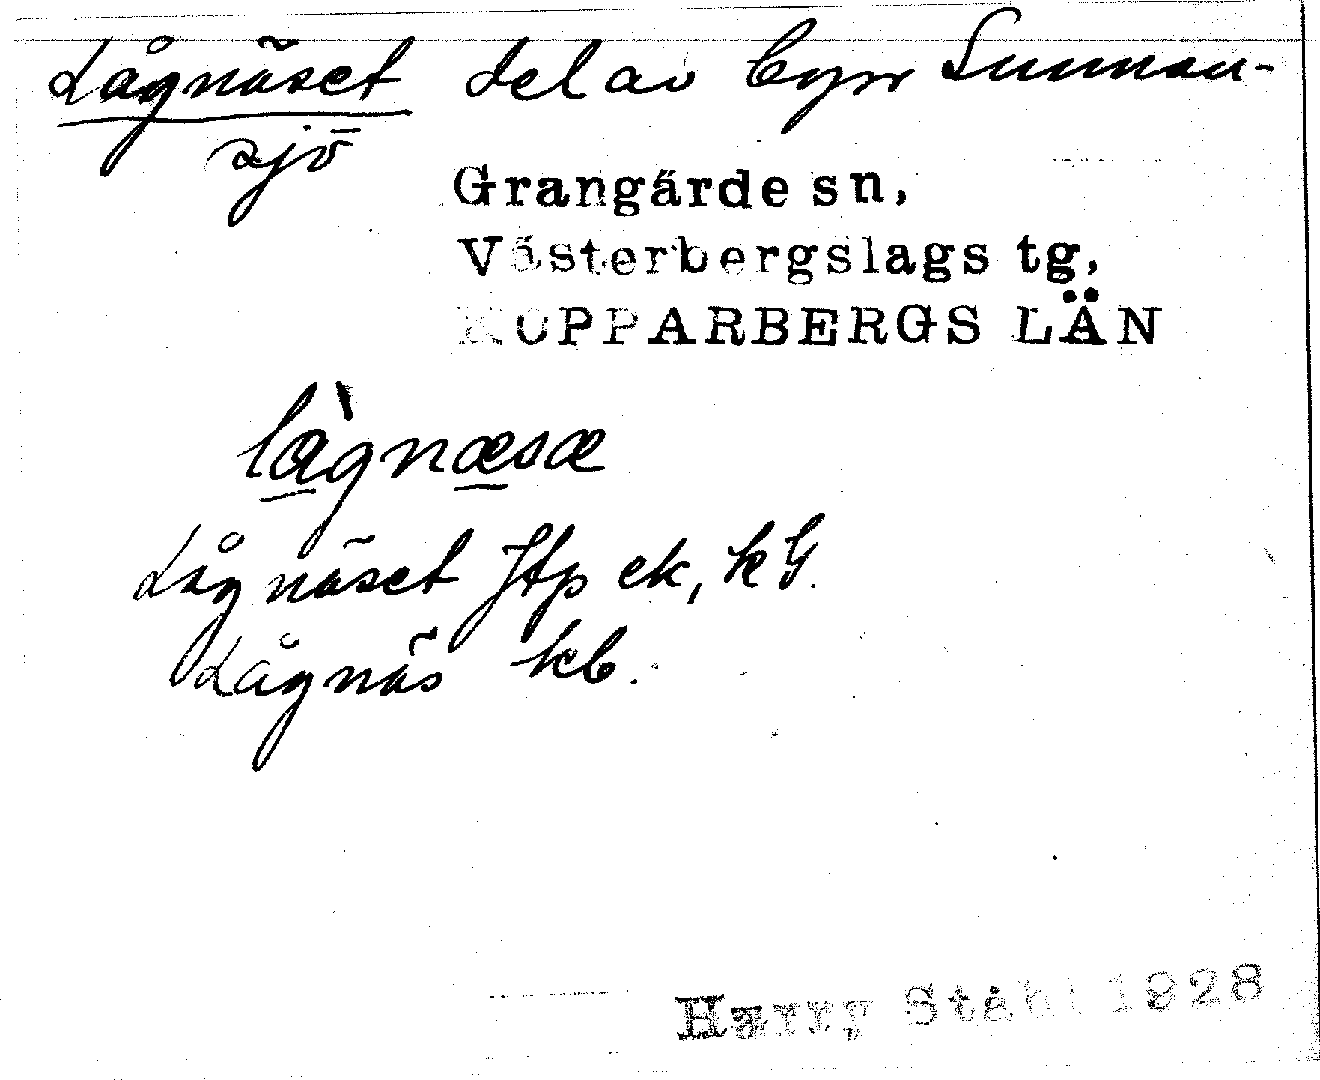 Lågnäset del av byn Sunnan-
sjö
Grangärde sn,
Västerbergslags tg,
KOPPARBERGS LÄN
lågnæsæ
Lågnäset Jtp ek, kG.
Lågnäs kb.
Harry Ståhl 1928